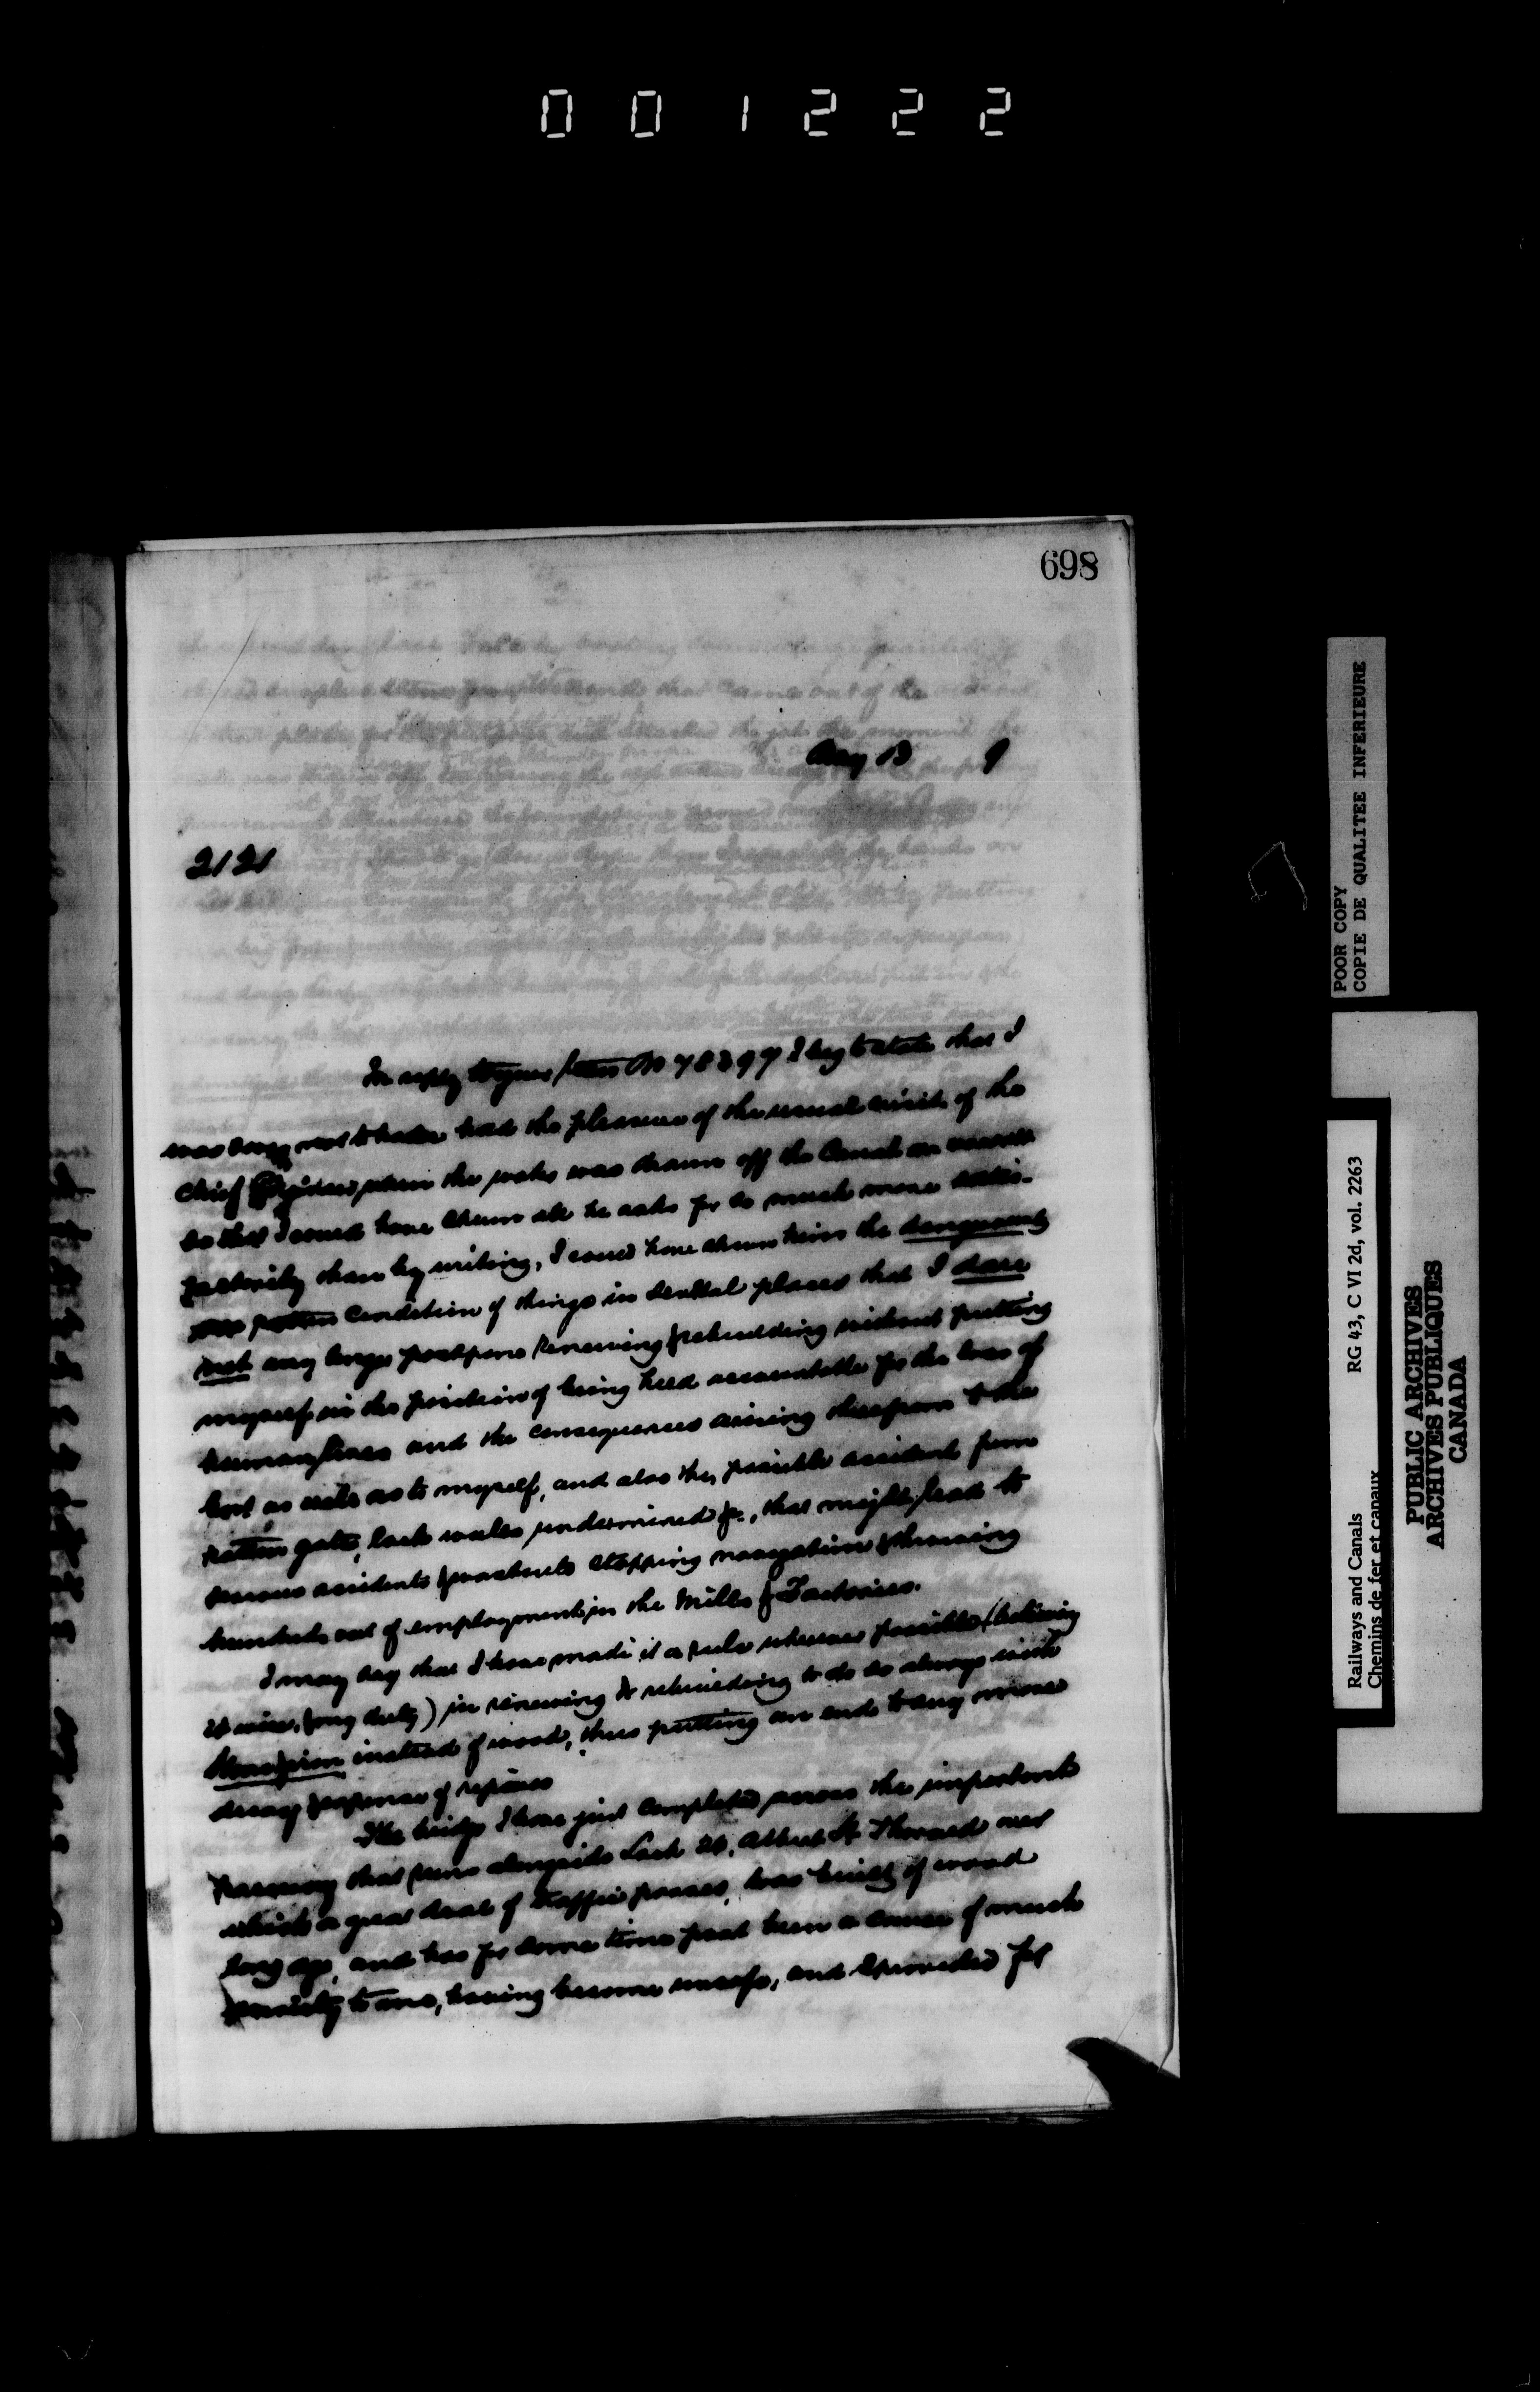 001222
698
May 13 9
2121
In reply to your letter No 78397 I beg to state that I
was very sorry not to have had the pleasure of the usual visit of the
Chief Engineer when the water was drawn off the Canal
so that I could have shewn all he asks for so much more satis-
factorily than by writing, I could have shewn him the dangerously
rotten condition of things in several places that I dare
not any longer postpone renewing & rebuilding without putting
myself in the position of being held accountable for the loss of
human lives and the consequences arising therefrom to the
Govt as well as to myself, and also the possible accident from
rotten gates, lock walls undermined &c., that might lead to
serious accidents & perhaps stopping navigation & throwing
hundreds out of employment in the Mills & Factories.
I may say that I have made it a rule wherever possible (believing
it wise, & my duty) in renewing & rebuilding to do so always with
Stone & iron instead of wood, thus putting an end to any more
decay & expense of repairs
The bridge I have just completed across the important
Raceway that runs alongside Lock 24, Albert St Thorold over
which a great deal of traffic passes, was built of wood
long ago, and has for some time past been a cause of much
anxiety to me, having become unsafe, and I provided for
POOR COPY
COPIE DE QUALITEE INFERIEURE
Railways and Canals RG 43, C VI 2d, vol. 2263
Chemins de fer et canaux
PUBLIC ARCHIVES
ARCHIVES PUBLIQUES
CANADA